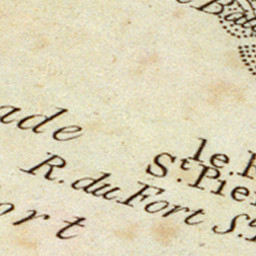 Bal
ade
le.F
St. Pie
R. du Fort St.
ort